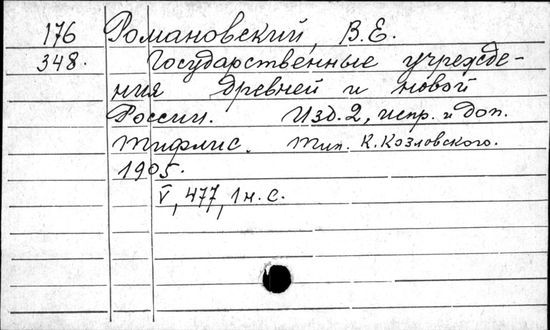 176 Романовский, В.Е.
348. Государственные учрежде-
ния древней и новой
России. Изд. 2, испр. и доп.
Тифлис. Тип. К. Козловского.
1905.
V, 477, 1 н. с.